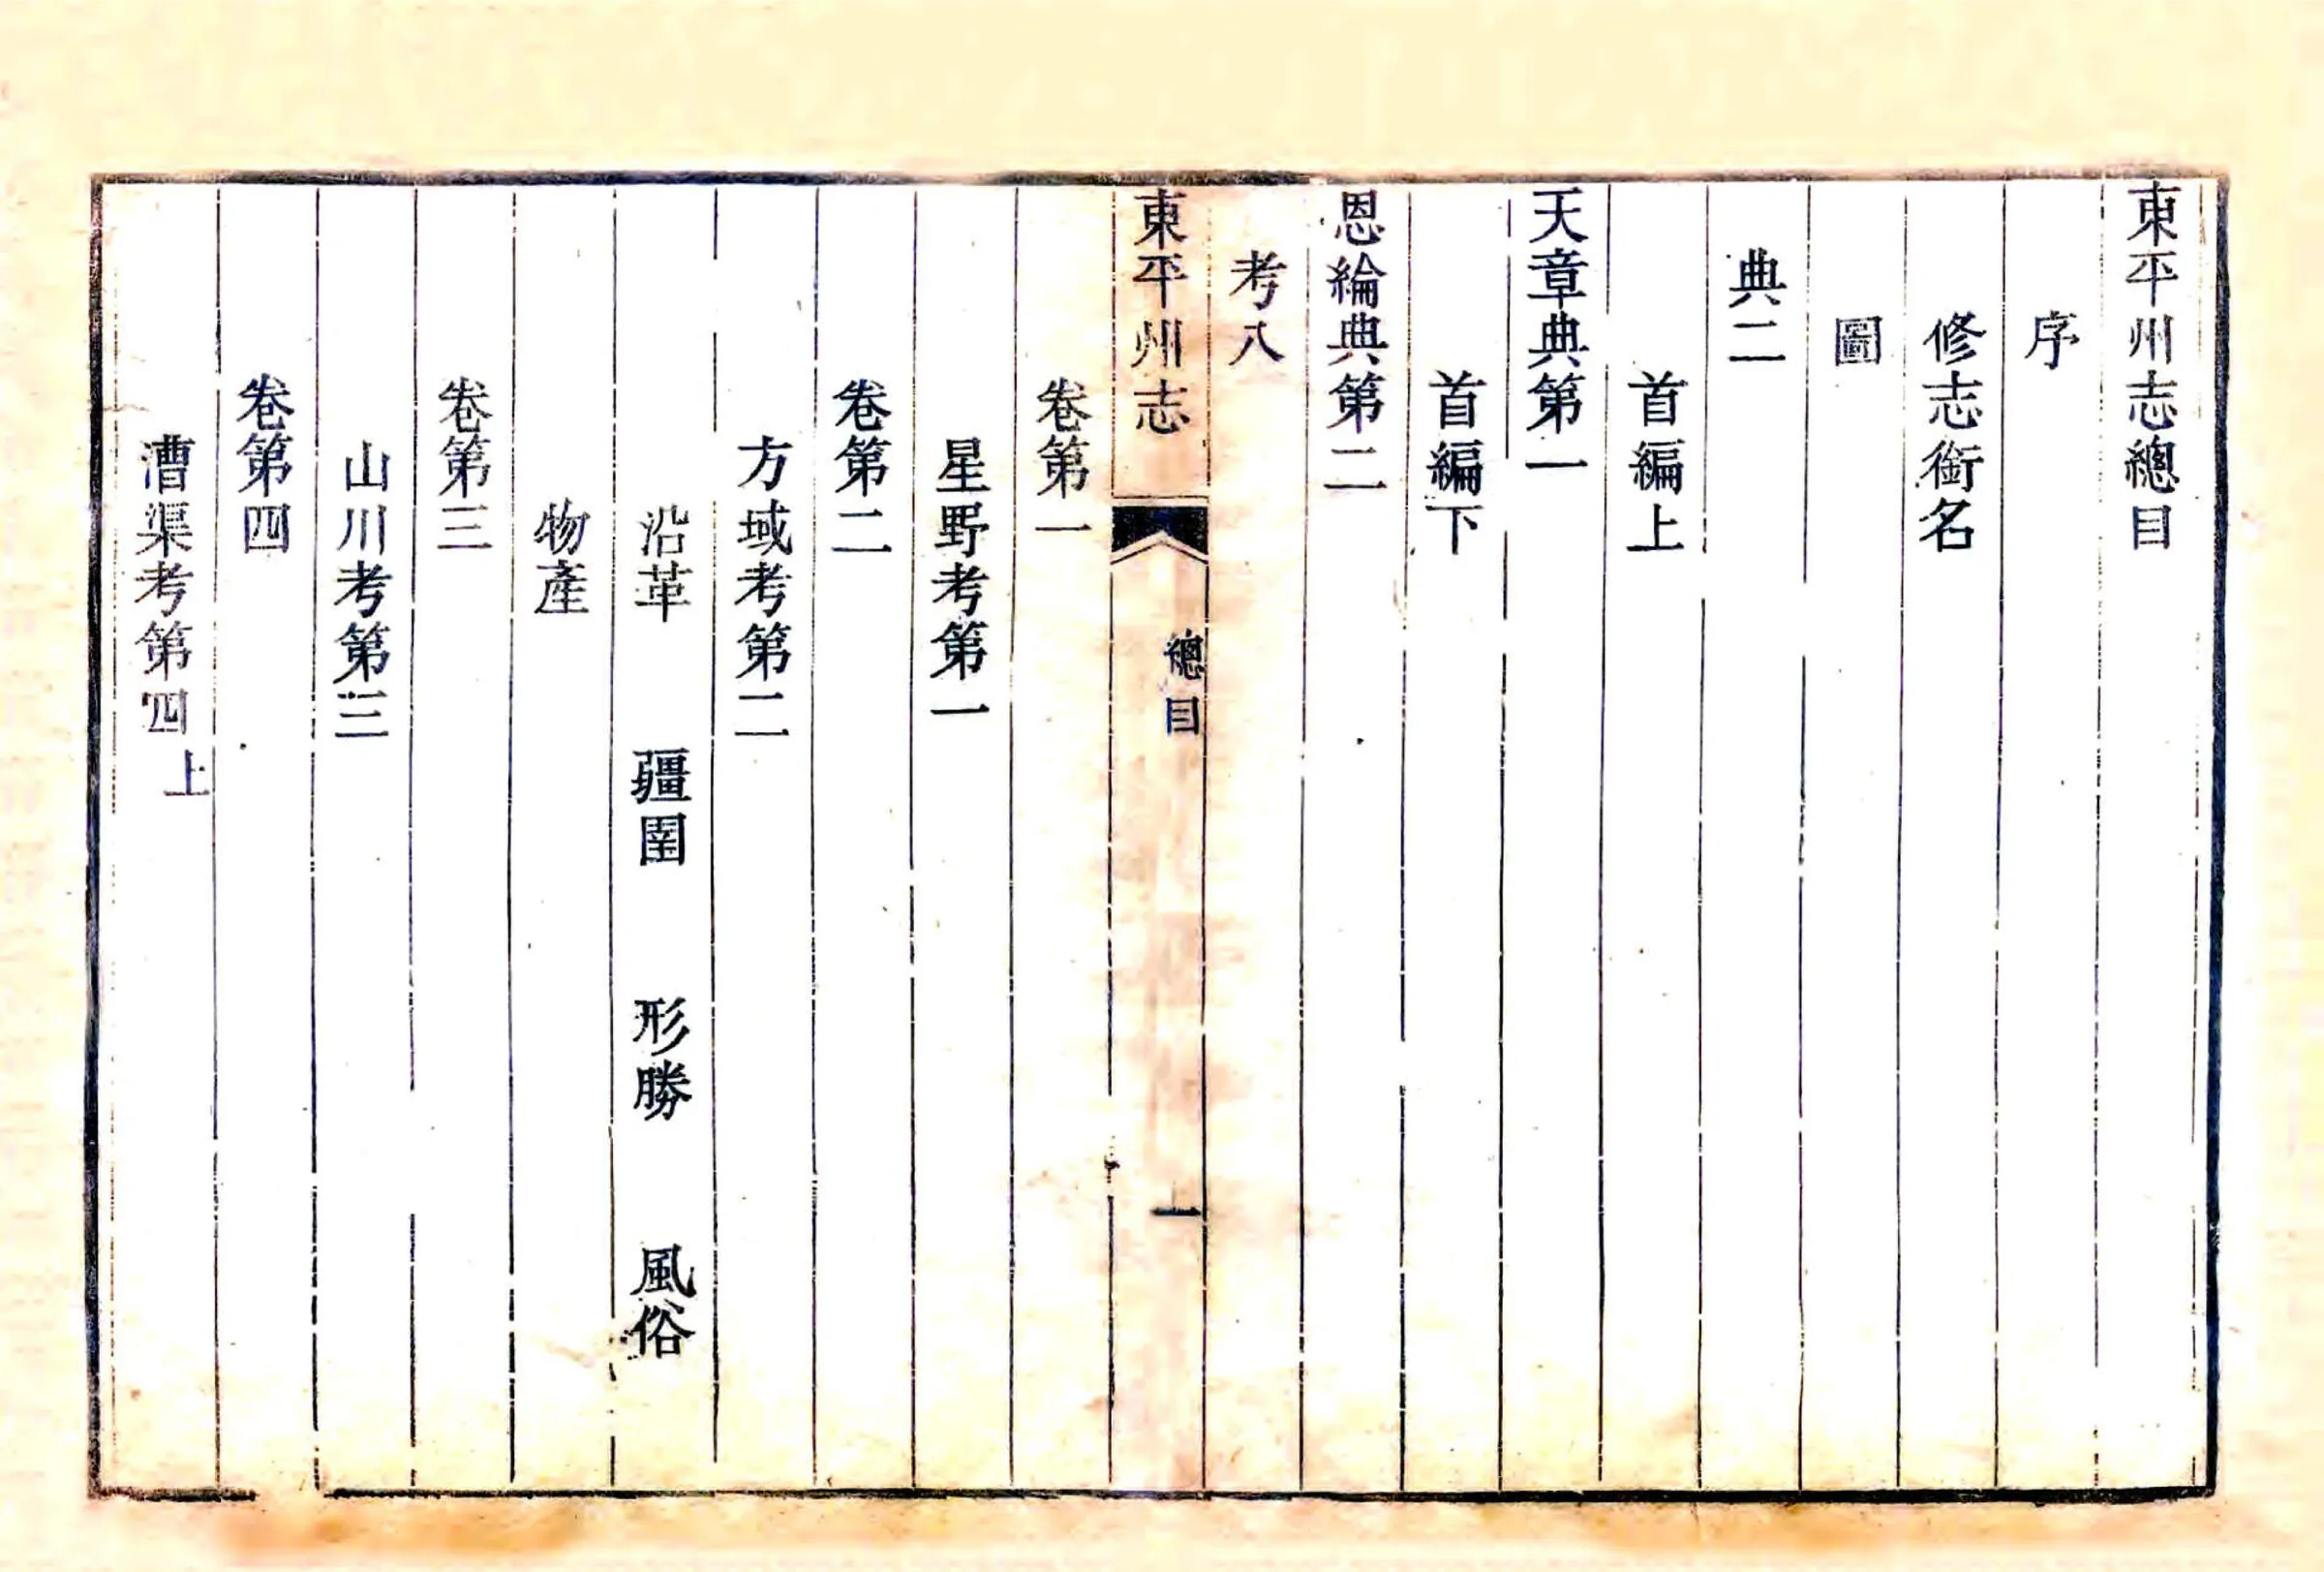 東平州志總目
序
修志銜名
圖
典二
首編上
天章典第一
首編下
恩綸典第二
考八
東平州志
總目
一
卷第一
星野考第一
卷第二
方域考第二
沿革 疆圉 形勝 風俗
物產
卷第三
山川考第三
卷第四
漕渠考第四上